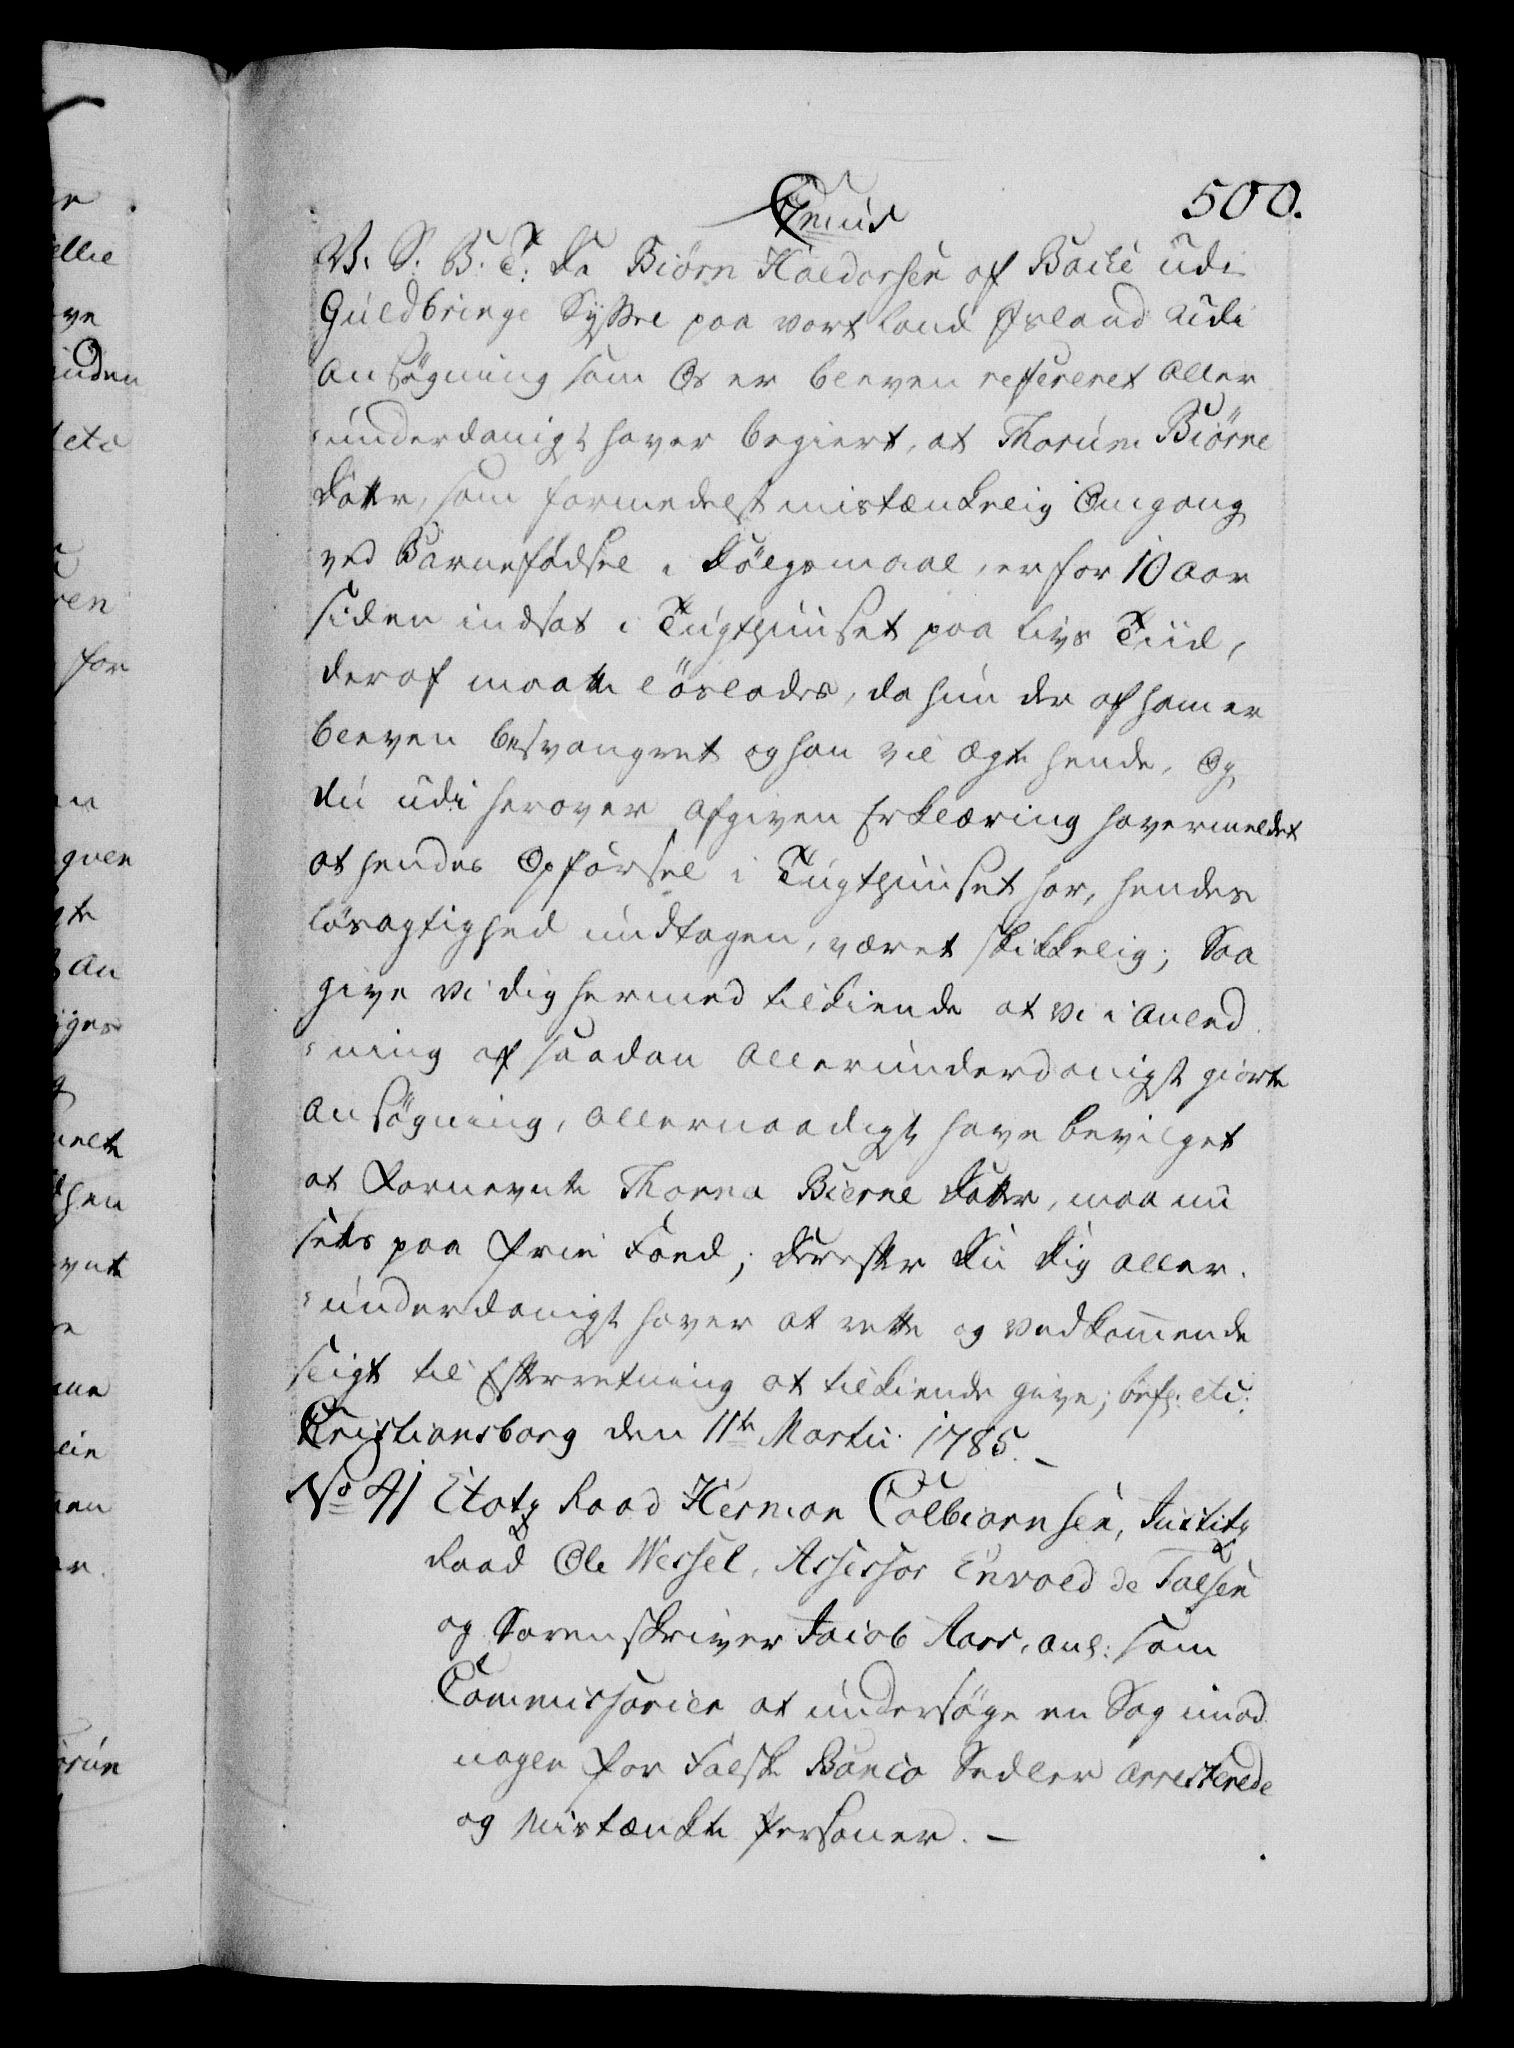 500.
V. S. G. T: Da Biørn Haldorsen af Bacte udi
Guldbringe Syssel paa vort Land Island udi
Ansøgning som Os er bleven refereret aller
-underdanigst haver begiert, at Thorun Biørne
Datter, som formedelst mistænkelig Omgang
ved Barnefødsel i Dølgsmaal, er for 10 Aar
siden indsat i Tugthuuset paa Livs Tiid,
deraf maatte løslades, da hun der af ham er
bleven besvangret og han vil ægte hende, Og
Du udi herover afgiven Erklæring haver meldet
at hendes Opførsel i Tugthuuset har, hendes
løsagtighed undtagen, været skikkelig; Saa
give Vi dig hermed tilkiende at Vi i Anled
-ning af saadan allerunderdanigst giorte
Ansøgning, allernaadigst have bevilget
at fornevnte Thorna Bierne Datter, maa nu
sættes paa frie Foed; Derefter Du Dig aller-
-underdanigst haver at rette og Vedkommende
sligt til Efterretning at tilkiende give; bef: etc:
Cristiansborg den 11te Martii 1785.
No 41 Etatz Raad Herman Colbiørnsen, Justitz
Raad Ole Wessel, Assessor Envold de Falsen
og Sorenskriver Jacob Aars, anl: som
Commissarier at undersøge en Sag imod
nogle for Falske Banco Sedler arresterede
og Mistænkte Personer. -